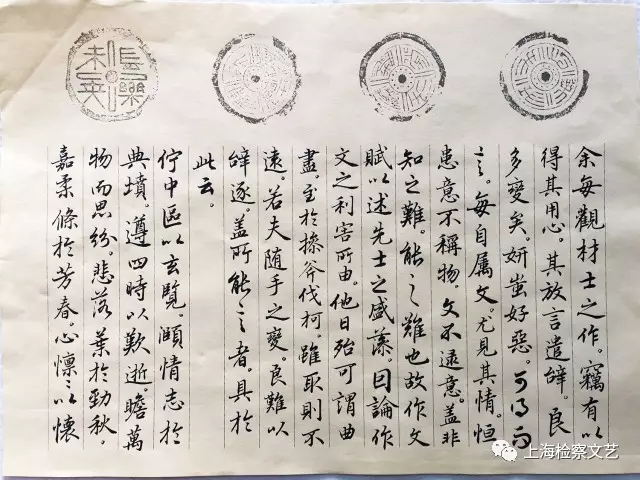 余每觀材士之作。竊有以
得其用心。其放言遣辭。良
多變矣。妍蚩好惡。可得而
言。每自属文。尤見其情。恒
患意不稱物。文不逮意。盖非
知之難。能之難也故作文
賦以述先士之盛藻。因論作
文之利害所由。他日殆可謂曲
盡至於操斧伐柯。雖取則不
遠。若夫随手之變。良難以
辭逐。盖所能言者。具於
此云。
佇中區以玄覽。頤情志於
典墳。遵四時以歎逝。瞻萬
物而思紛。悲落葉於勁秋。
嘉柔條於芳春。心懍〻以懷
上海检察文艺